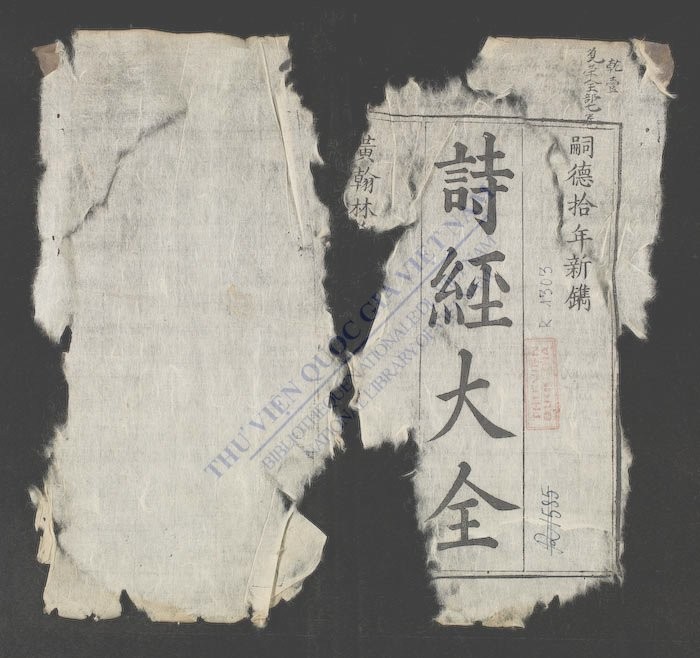 嗣德拾年新鐫
詩經大全
黃翰林
R 1303
R/1535
THƯ VIỆN QUỐC GIA VIỆT NAM
BIBLIOTHÈQUE NATIONALE DU VIETNAM
NATIONAL LIBRARY OF VIETNAM